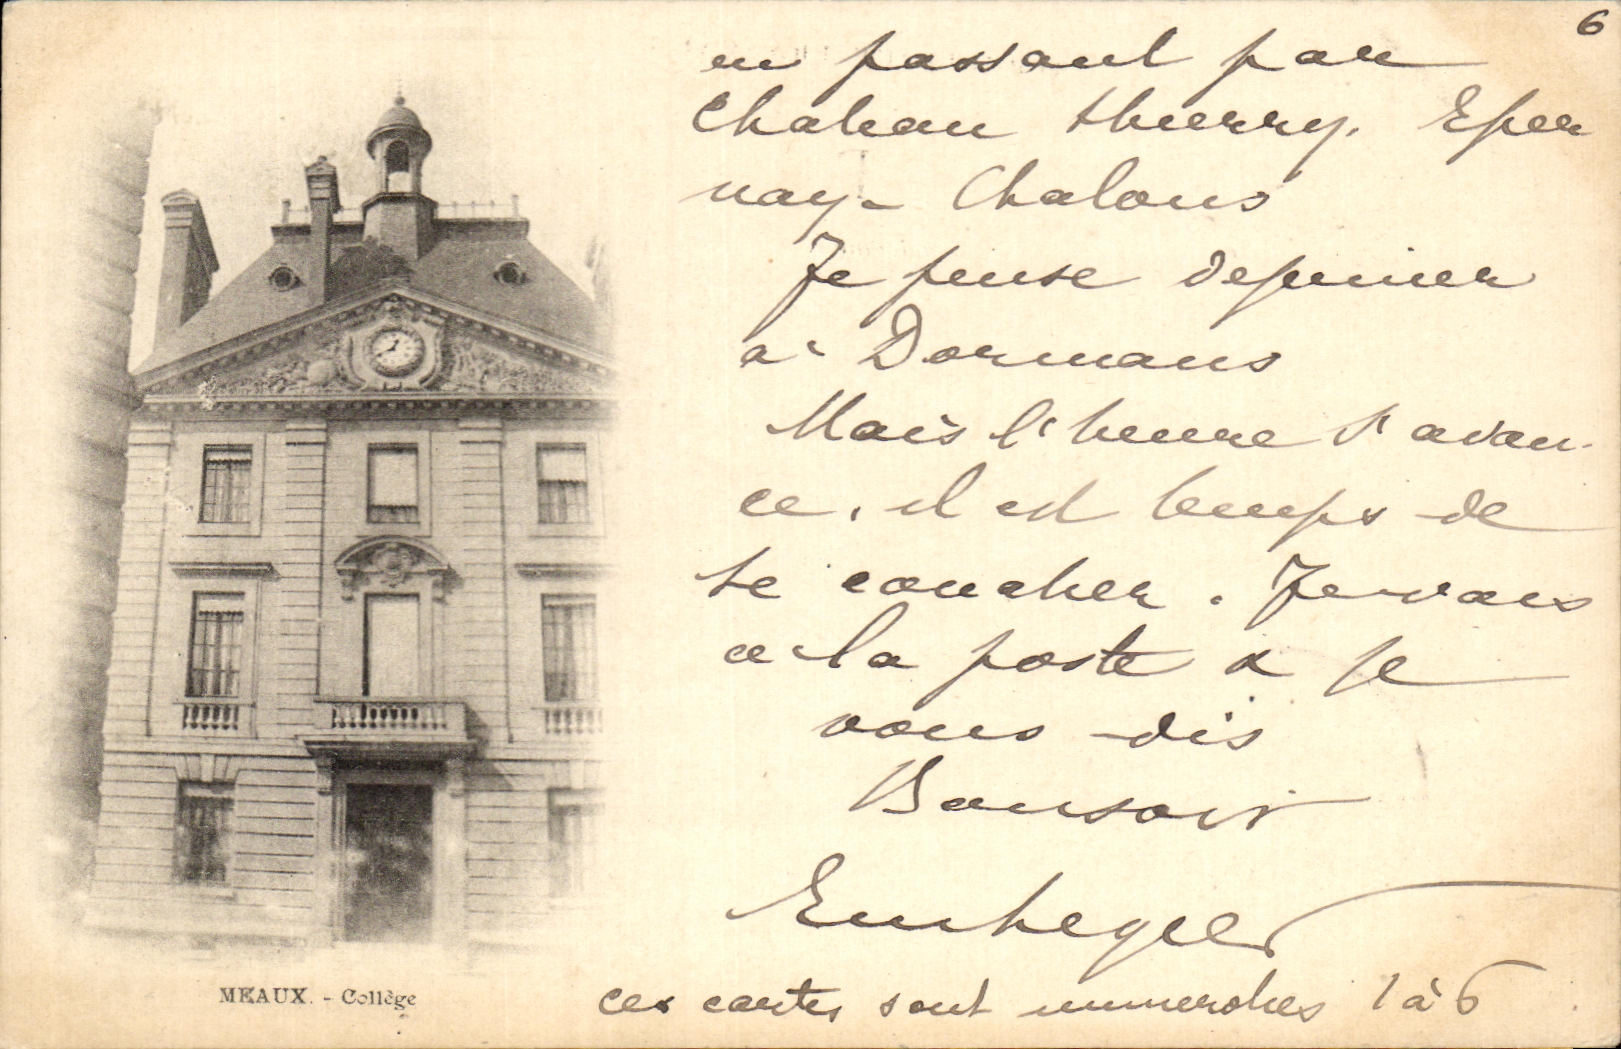 6
en passant par
Chateau thierry. Eper
nay - Chalons
Je pense dejeuner
a Dormans
Mais l'heure s'avan-
ce, il est temps de
se coucher. Je vais
a la poste & je
vous dis
Bonsoir
ces cartes sont numerotees 1 à 6
MEAUX. - Collège